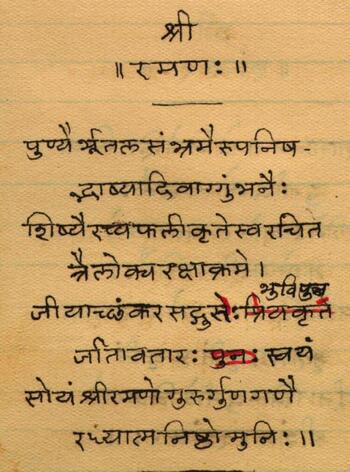 श्री
॥ रमणः ॥
पुण्यैर्भूतलसंभ्रमैरुपनिष-
द्भाष्यादिवाग्गुंभनैः
शिष्यैरप्यफलीकृतेस्वरचित
त्रैलोक्यरक्षाक्रमे।
भुवि पुनः
जीयाच्छंकरसद्गुरोः प्रियकृते
र्जातावतारः पुनः स्वयं
सोयं श्रीरमणो गुरुर्गुणगणै
रध्यात्मनिष्ठो मुनिः॥